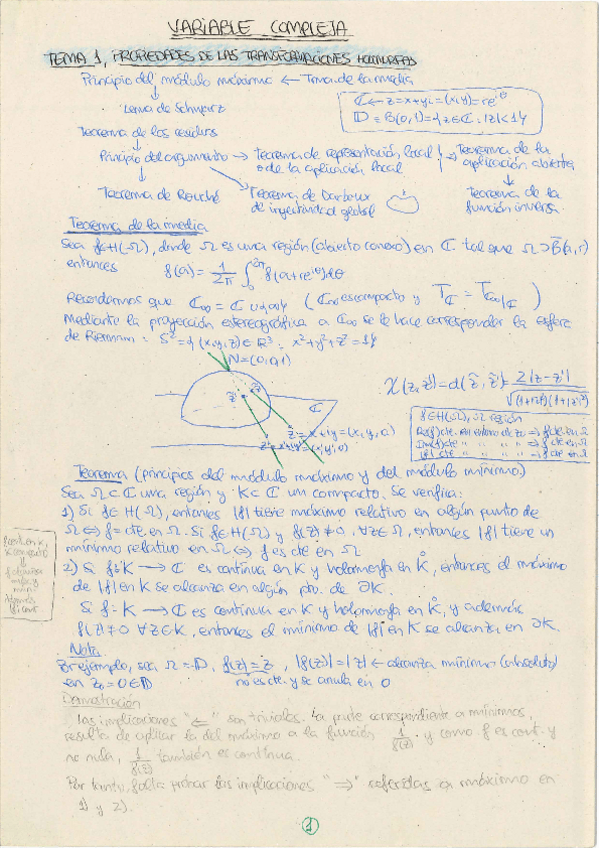 VARIABLE COMPLEJA
TEMA 1, PROPIEDADES DE LAS TRANSFORMACIONES HOLOMORFAS
Principio del módulo máximo ← Tma de la media
Lema de Schwarz
ℂ ← z=x+yi=(x,y)=re^{iθ}
𝔻 = B(0,1)={z∈ℂ: |z|<1}
Teorema de los residuos
Principio del argumento → Teorema de representación local o de la aplicación local → Teorema de la aplicación abierta
Teorema de Rouché
Teorema de Darboux de inyectividad global
Teorema de la función inversa
Teorema de la media
Sea f∈H(Ω), donde Ω es una región (abierto conexo) en ℂ tal que Ω⊃B̄(a,r)
entonces f(a) = 1/2π ∫₀^{2π} f(a+re^{iθ})dθ
Recordamos que ℂ∞ = ℂ∪{∞} (ℂ∞ es compacto y T_ℂ = T_{ℂ∞|ℂ})
Mediante la proyección estereográfica a ℂ∞ se le hace corresponder la esfera
de Riemann: S² = {(x,y,z)∈ℝ³: x²+y²+z²=1}
N=(0,0,1)
ℂ
z=x+iy=(x,y,0)
z'=x'+iy'=(x',y',0)
χ(z,z')=d(ẑ,ẑ')= 2|z-z'| / √(1+|z|²)(1+|z'|²)
f∈H(Ω), Ω región
Re(f) cte. en entorno de z₀ ⇒ f cte. en Ω
Im(f) cte " " " " ⇒ f cte en Ω
|f| cte " " " " ⇒ f cte en Ω
Teorema (principios del módulo máximo y del módulo mínimo)
Sea Ω⊂ℂ una región y K⊂ℂ un compacto. Se verifica:
1) Si f∈H(Ω), entonces |f| tiene máximo relativo en algún punto de
Ω ⇔ f=cte. en Ω. Si f∈H(Ω) y f(z)≠0, ∀z∈Ω, entonces |f| tiene un
mínimo relativo en Ω ⇔ f es cte en Ω
2) Si f:K → ℂ es continua en K y holomorfa en K̊, entonces el máximo
de |f| en K se alcanza en algún pto. de ∂K.
Si f:K → ℂ es continua en K y holomorfa en K̊, y además
f(z)≠0 ∀z∈K, entonces el mínimo de |f| en K se alcanza en ∂K.
f cont. en K,
K compacto
⇓
f alcanza
máx y
mín.
Nota
Por ejemplo, sea Ω=𝔻, f(z)=z, |f(z)|=|z| ← alcanza mínimo (absoluto)
en z₀=0∈𝔻 no es cte. y se anula en 0
Demostración
Las implicaciones "⇐" son triviales. La parte correspondiente a mínimos,
resulta de aplicar la del máximo a la función 1/f(z) y como f es cont. y
no nula, 1/f(z) también es continua.
Por tanto, falta probar las implicaciones "⇒" referidas a máximo en
1) y 2).
1